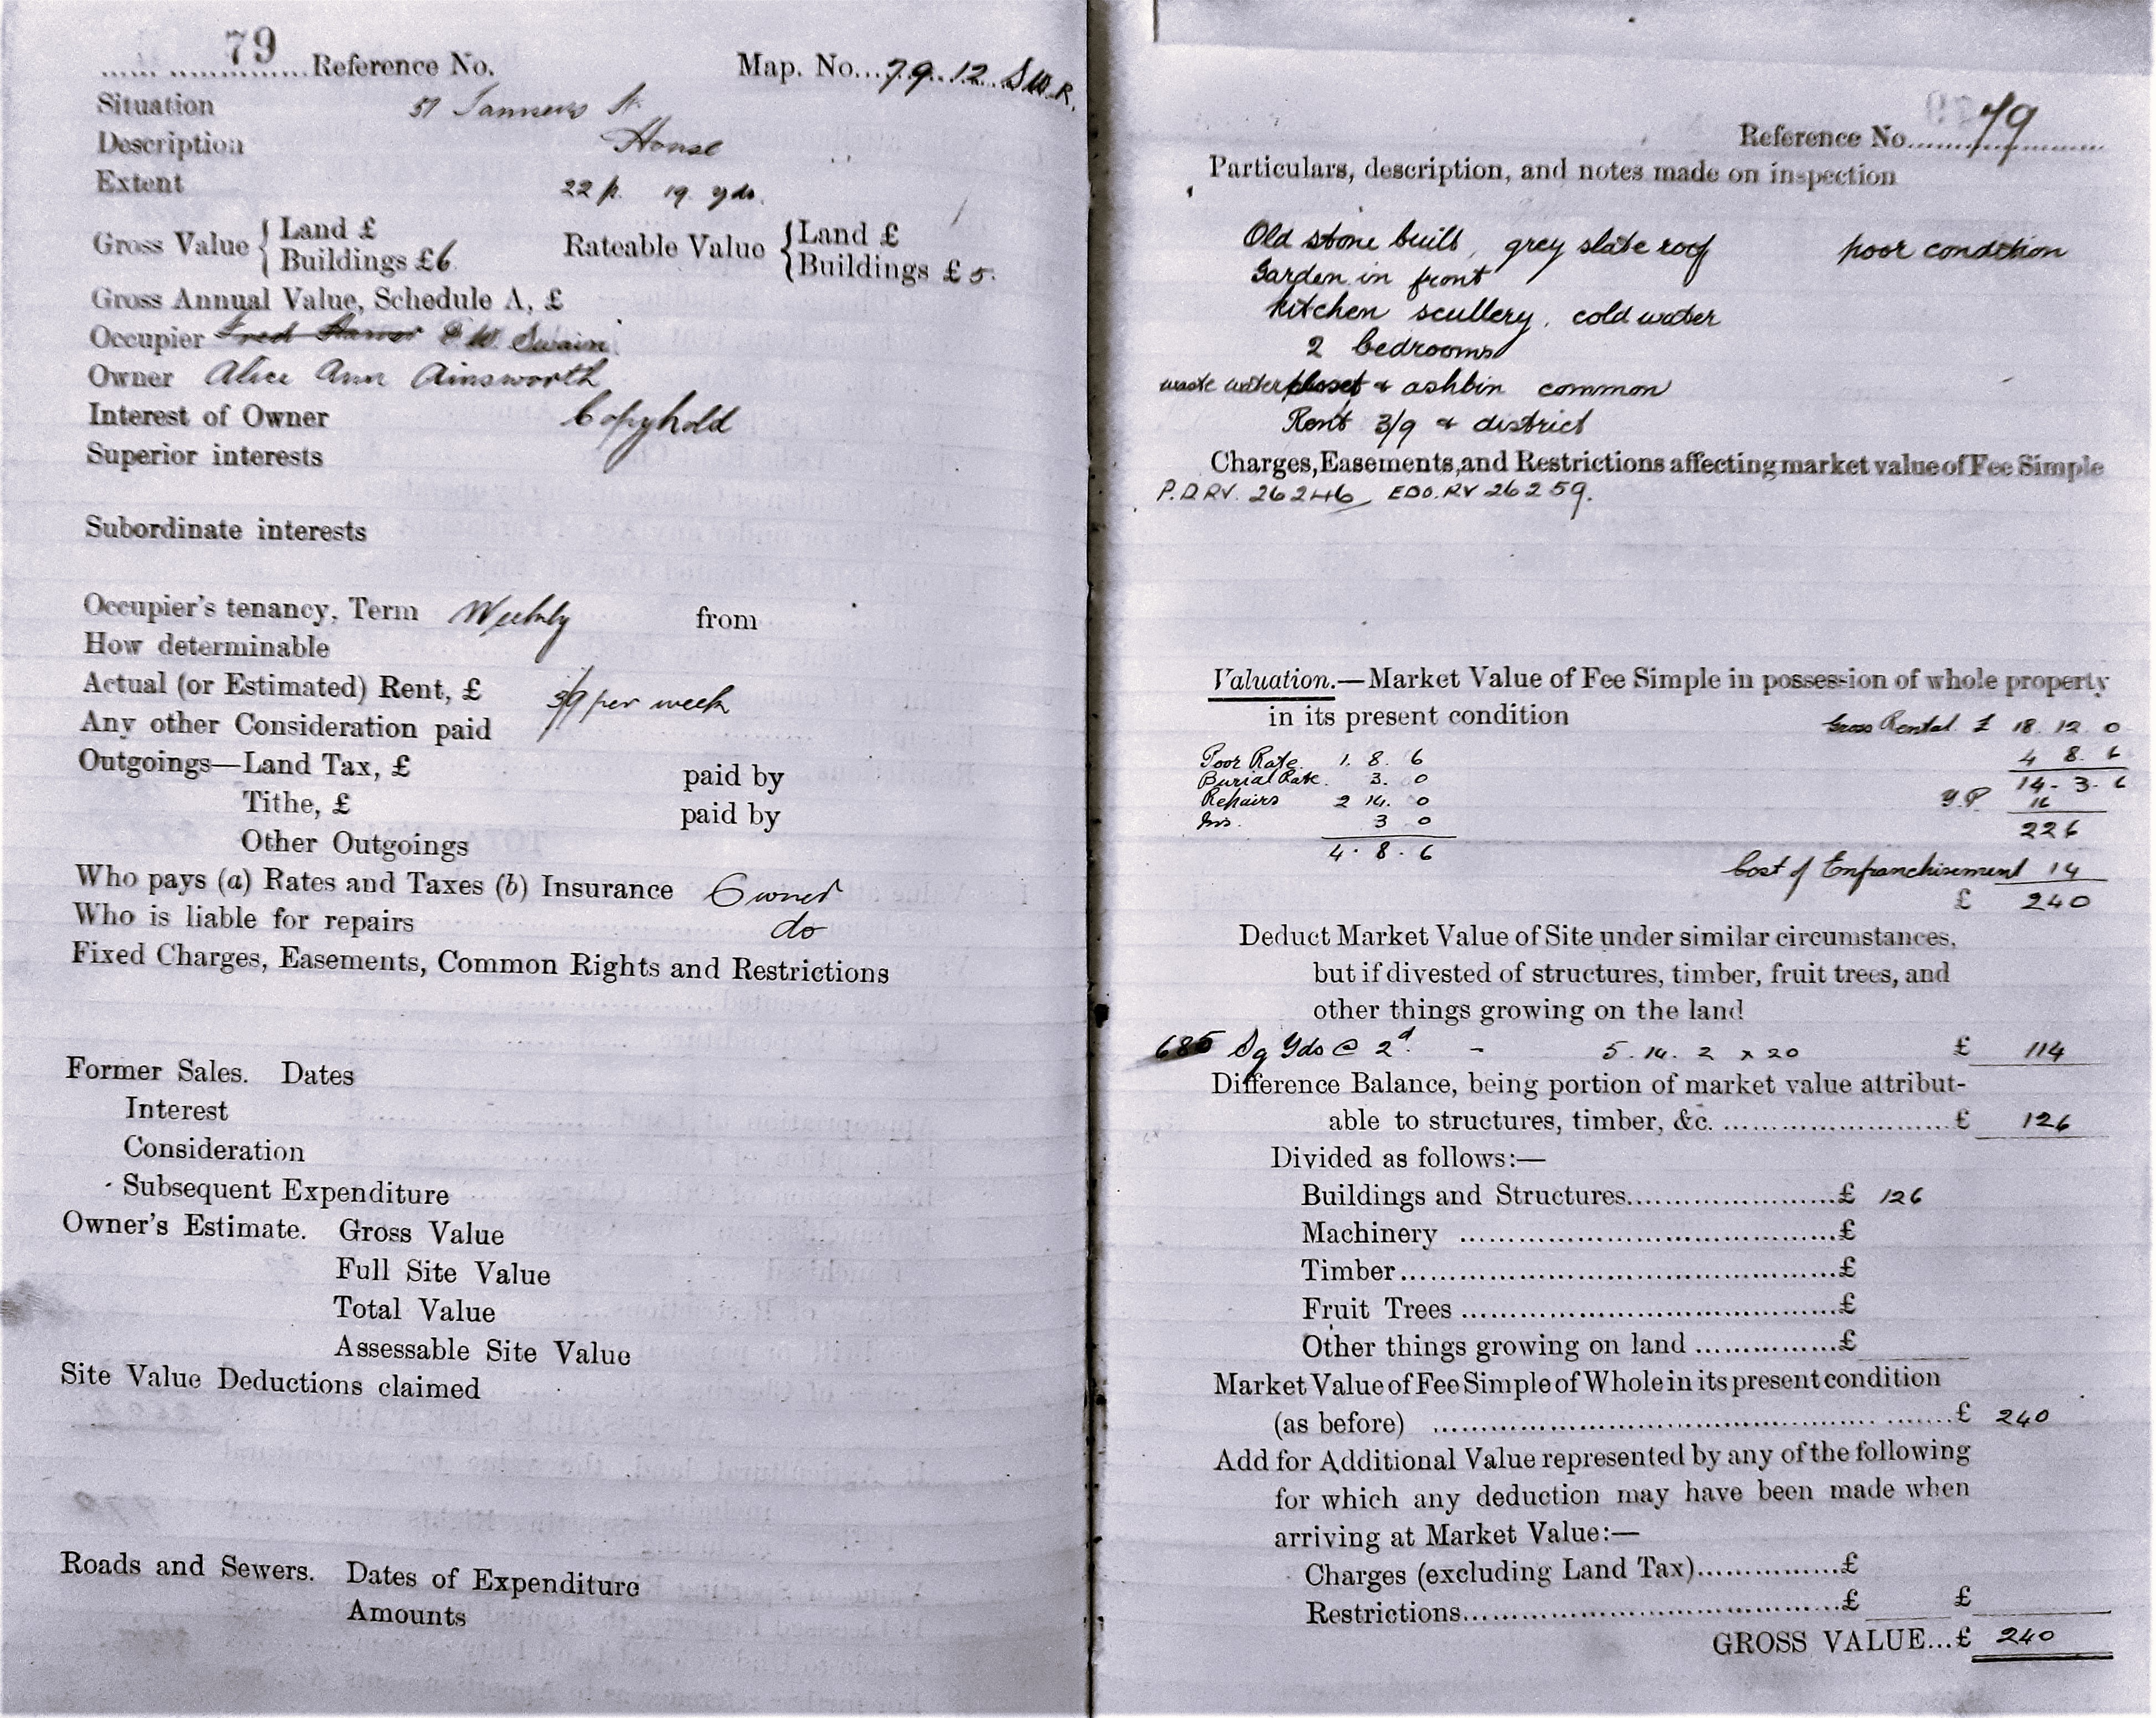 79 Reference No. Map. No... 79.12 S.W.R.
Situation 57 Tanners St
Description House
Extent 22 p. 19 yds.
Gross Value { Land £
Buildings £6
Rateable Value { Land £
Buildings £ 5.
Gross Annual Value, Schedule A, £
Occupier Fred W. Swain
Owner Alice Ann Ainsworth
Interest of Owner Copyhold
Superior interests
Subordinate interests
Occupier's tenancy, Term Weekly from
How determinable
Actual (or Estimated) Rent, £ 3/9 per week
Any other Consideration paid
Outgoings—Land Tax, £ paid by
Tithe, £ paid by
Other Outgoings
Who pays (a) Rates and Taxes (b) Insurance Owner
Who is liable for repairs do
Fixed Charges, Easements, Common Rights and Restrictions
Former Sales. Dates
Interest
Consideration
Subsequent Expenditure
Owner's Estimate. Gross Value
Full Site Value
Total Value
Assessable Site Value
Site Value Deductions claimed
Roads and Sewers. Dates of Expenditure
Amounts
Reference No. 79
Particulars, description, and notes made on inspection
Old stone built, grey slate roof poor condition
Garden in front
kitchen scullery, cold water
2 bedrooms
waste water closet & ashbin common
Rent 3/9 & district
Charges, Easements, and Restrictions affecting market value of Fee Simple
P.D RV. 26246 EDO. RV 26259.
Valuation.—Market Value of Fee Simple in possession of whole property
in its present condition Gross Rental £ 18. 12. 0
Poor Rate. 1. 8. 6 4 8. 6
Burial Rate. 3. 0 14 - 3 - 6
Repairs 2 14. 0 Y.P. 16
Ins. 3 0 226
4 . 8 . 6
Cost of Enfranchisement 14
£ 240
Deduct Market Value of Site under similar circumstances,
but if divested of structures, timber, fruit trees, and
other things growing on the land
685 Sq Yds @ 2d. - 5. 14. 2 x 20 £ 114
Difference Balance, being portion of market value attribut-
able to structures, timber, &c. £ 126
Divided as follows:—
Buildings and Structures £ 126
Machinery £
Timber £
Fruit Trees £
Other things growing on land £
Market Value of Fee Simple of Whole in its present condition
(as before) £ 240
Add for Additional Value represented by any of the following
for which any deduction may have been made when
arriving at Market Value:—
Charges (excluding Land Tax) £
Restrictions £ £
GROSS VALUE... £ 240